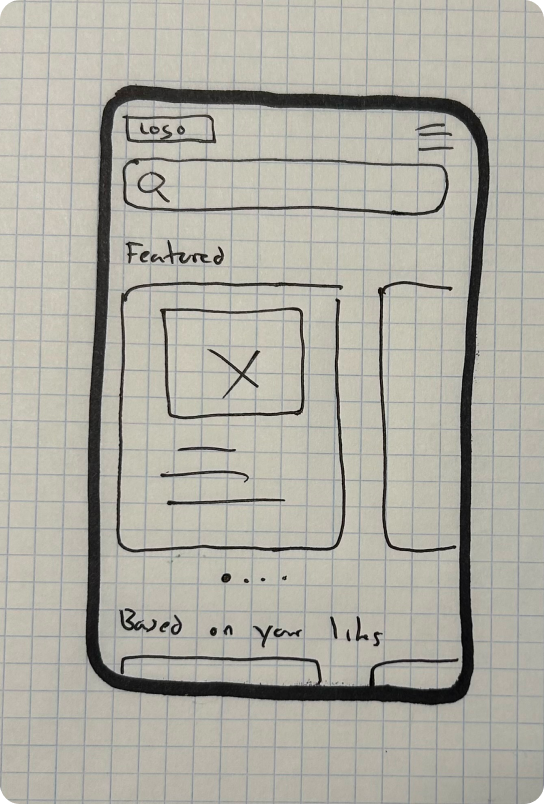 LOGO
Featured
Based on your likes